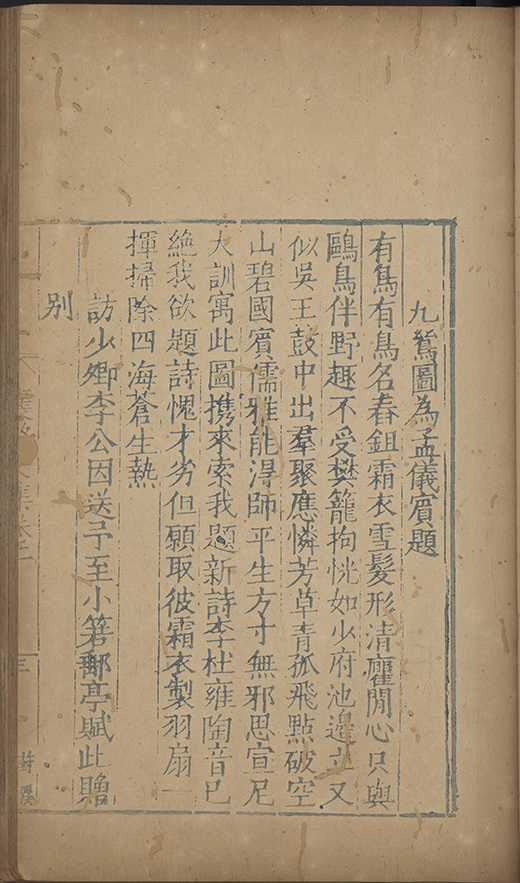 九鷺圖為孟儀賓題
有鳥有鳥名舂鉏霜衣雪髮形清癯閒心只與
鷗鳥伴野趣不受樊籠拘恍如少府池邊立又
似吳王鼓中出羣聚應憐芳草青孤飛點破空
山碧國賓儒雅能淂師平生方寸無邪思宣尼
大訓寓此圖携來索我題新詩李杜雍陶音已
絶我欲題詩愧才劣但願取彼霜衣製羽扇一
揮掃除四海蒼生熱
訪少卿李公因送予至小箬郵亭賦此贈
別